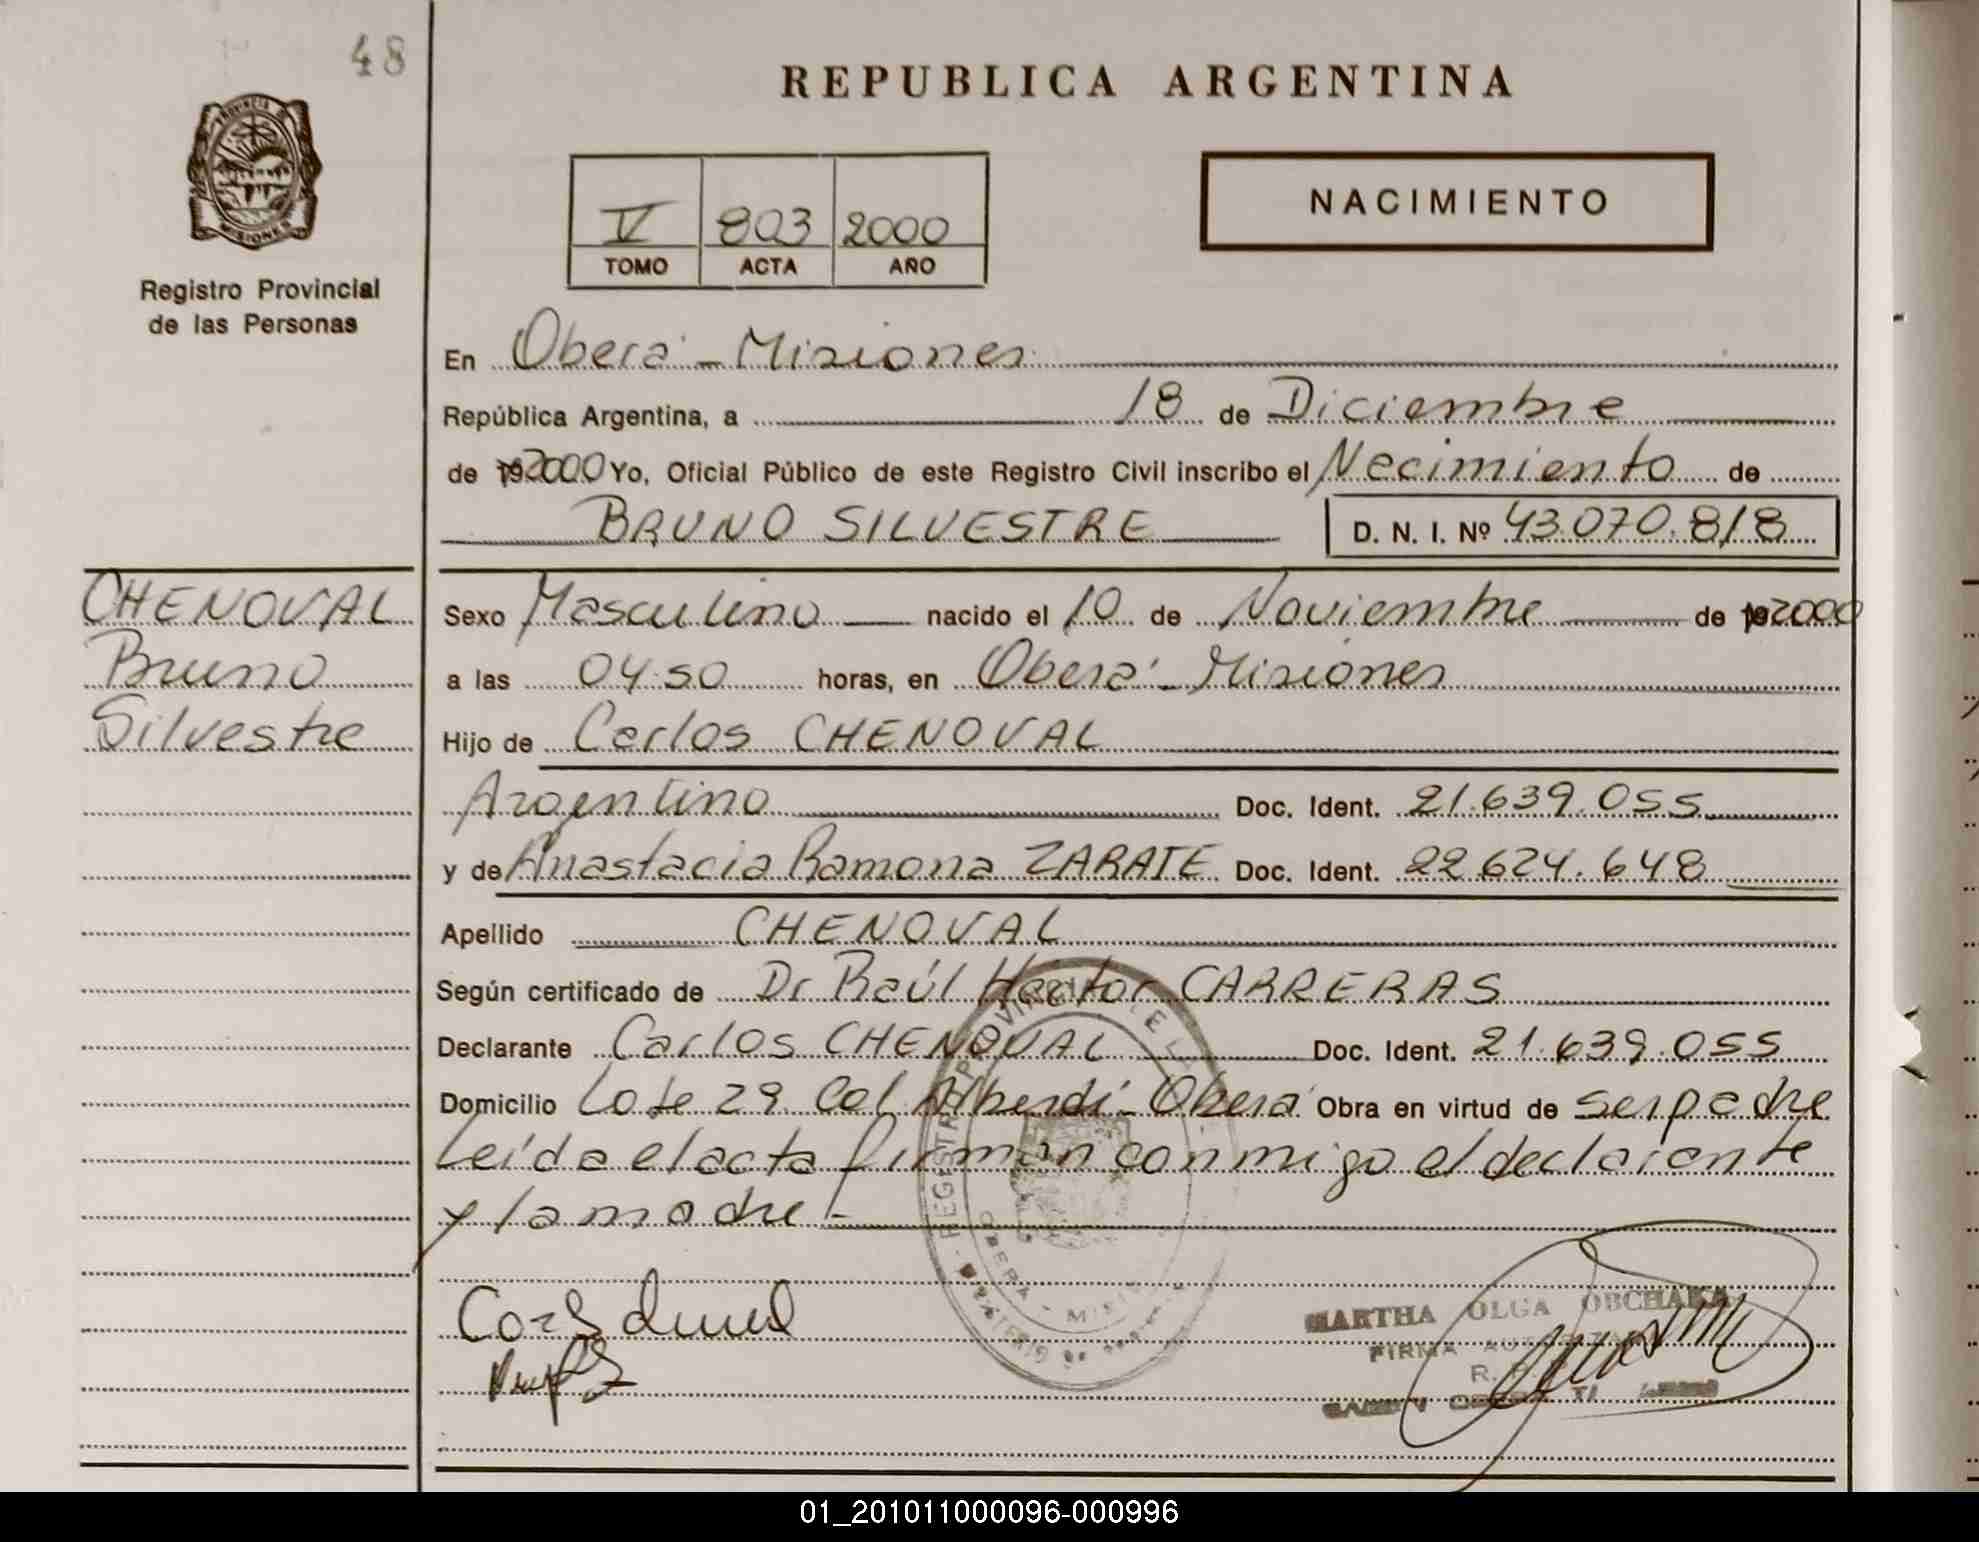 48
REPUBLICA ARGENTINA
PROVINCIA DE
MISIONES
Registro Provincial
de las Personas
V 803 2000
TOMO ACTA AÑO
NACIMIENTO
En Oberá - Misiones
República Argentina, a 18 de Diciembre
de 192000 Yo, Oficial Público de este Registro Civil inscribo el Nacimiento de
BRUNO SILVESTRE D. N. I. Nº 43.070.818
CHENOVAL
Bruno
Silvestre
Sexo Masculino nacido el 10 de Noviembre de 192000
a las 04:50 horas, en Oberá - Misiones
Hijo de Carlos CHENOVAL
Argentino Doc. Ident. 21.639.055
y de Anastacia Ramona ZARATE Doc. Ident. 22.624.648
Apellido CHENOVAL
Según certificado de Dr Raúl Héctor CARRERAS
Declarante Carlos CHENOVAL Doc. Ident. 21.639.055
Domicilio Lote 29 Col Alberdi - Oberá Obra en virtud de ser padre
Leída el acta firman conmigo el declarante
y la madre.-
MARTHA OLGA OBCHAKA
FIRMA
01_201011000096-000996